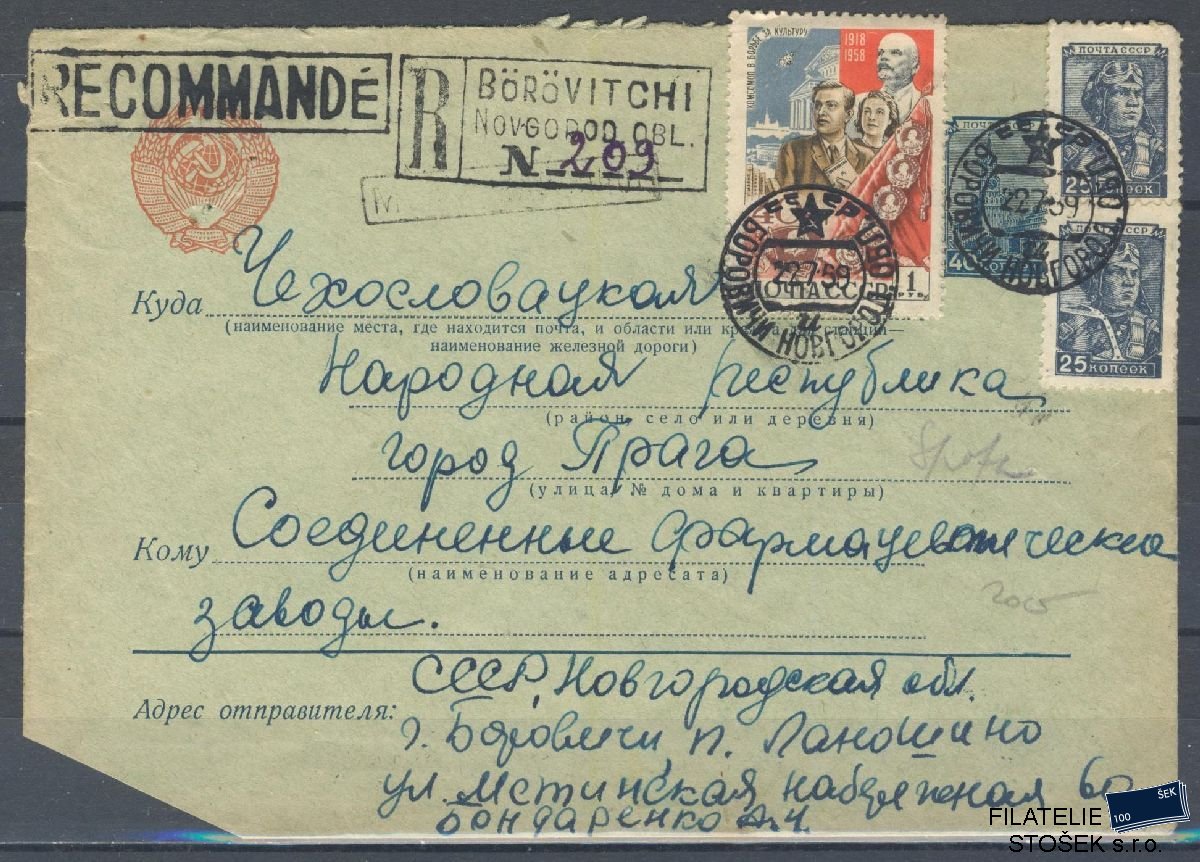 RECOMMANDÉ
R
BÖRÖVITCHI
NOVGOROD OBL.
N 209
КОМСОМОЛ В БОРЬБЕ ЗА КУЛЬТУРУ
1918
1958
ПОЧТА СССР
1
РУБ.
ПОЧТА СССР
25 КОПЕЕК
40
ПОЧТА СССР
25 КОПЕЕК
СССР
22 7 59
БОРОВИЧИ НОВГОРОД. ОБЛ
СССР
22 7 59
БОРОВИЧИ НОВГОРОД. ОБЛ
Куда Чехословацкая
(наименование места, где находится почта, и области или края, а для станции—
наименование железной дороги)
Народная республика
(район, село или деревня)
город Прага
(улица, № дома и квартиры)
Кому Соединенные фармацевтические
(наименование адресата)
заводы.
Адрес отправителя:
СССР, Новгородская обл.
г. Боровичи п. Ланошино
ул. Мстинская набережная
Бондаренко А.Ч.
ŠEK
100
FILATELIE
STOŠEK s.r.o.